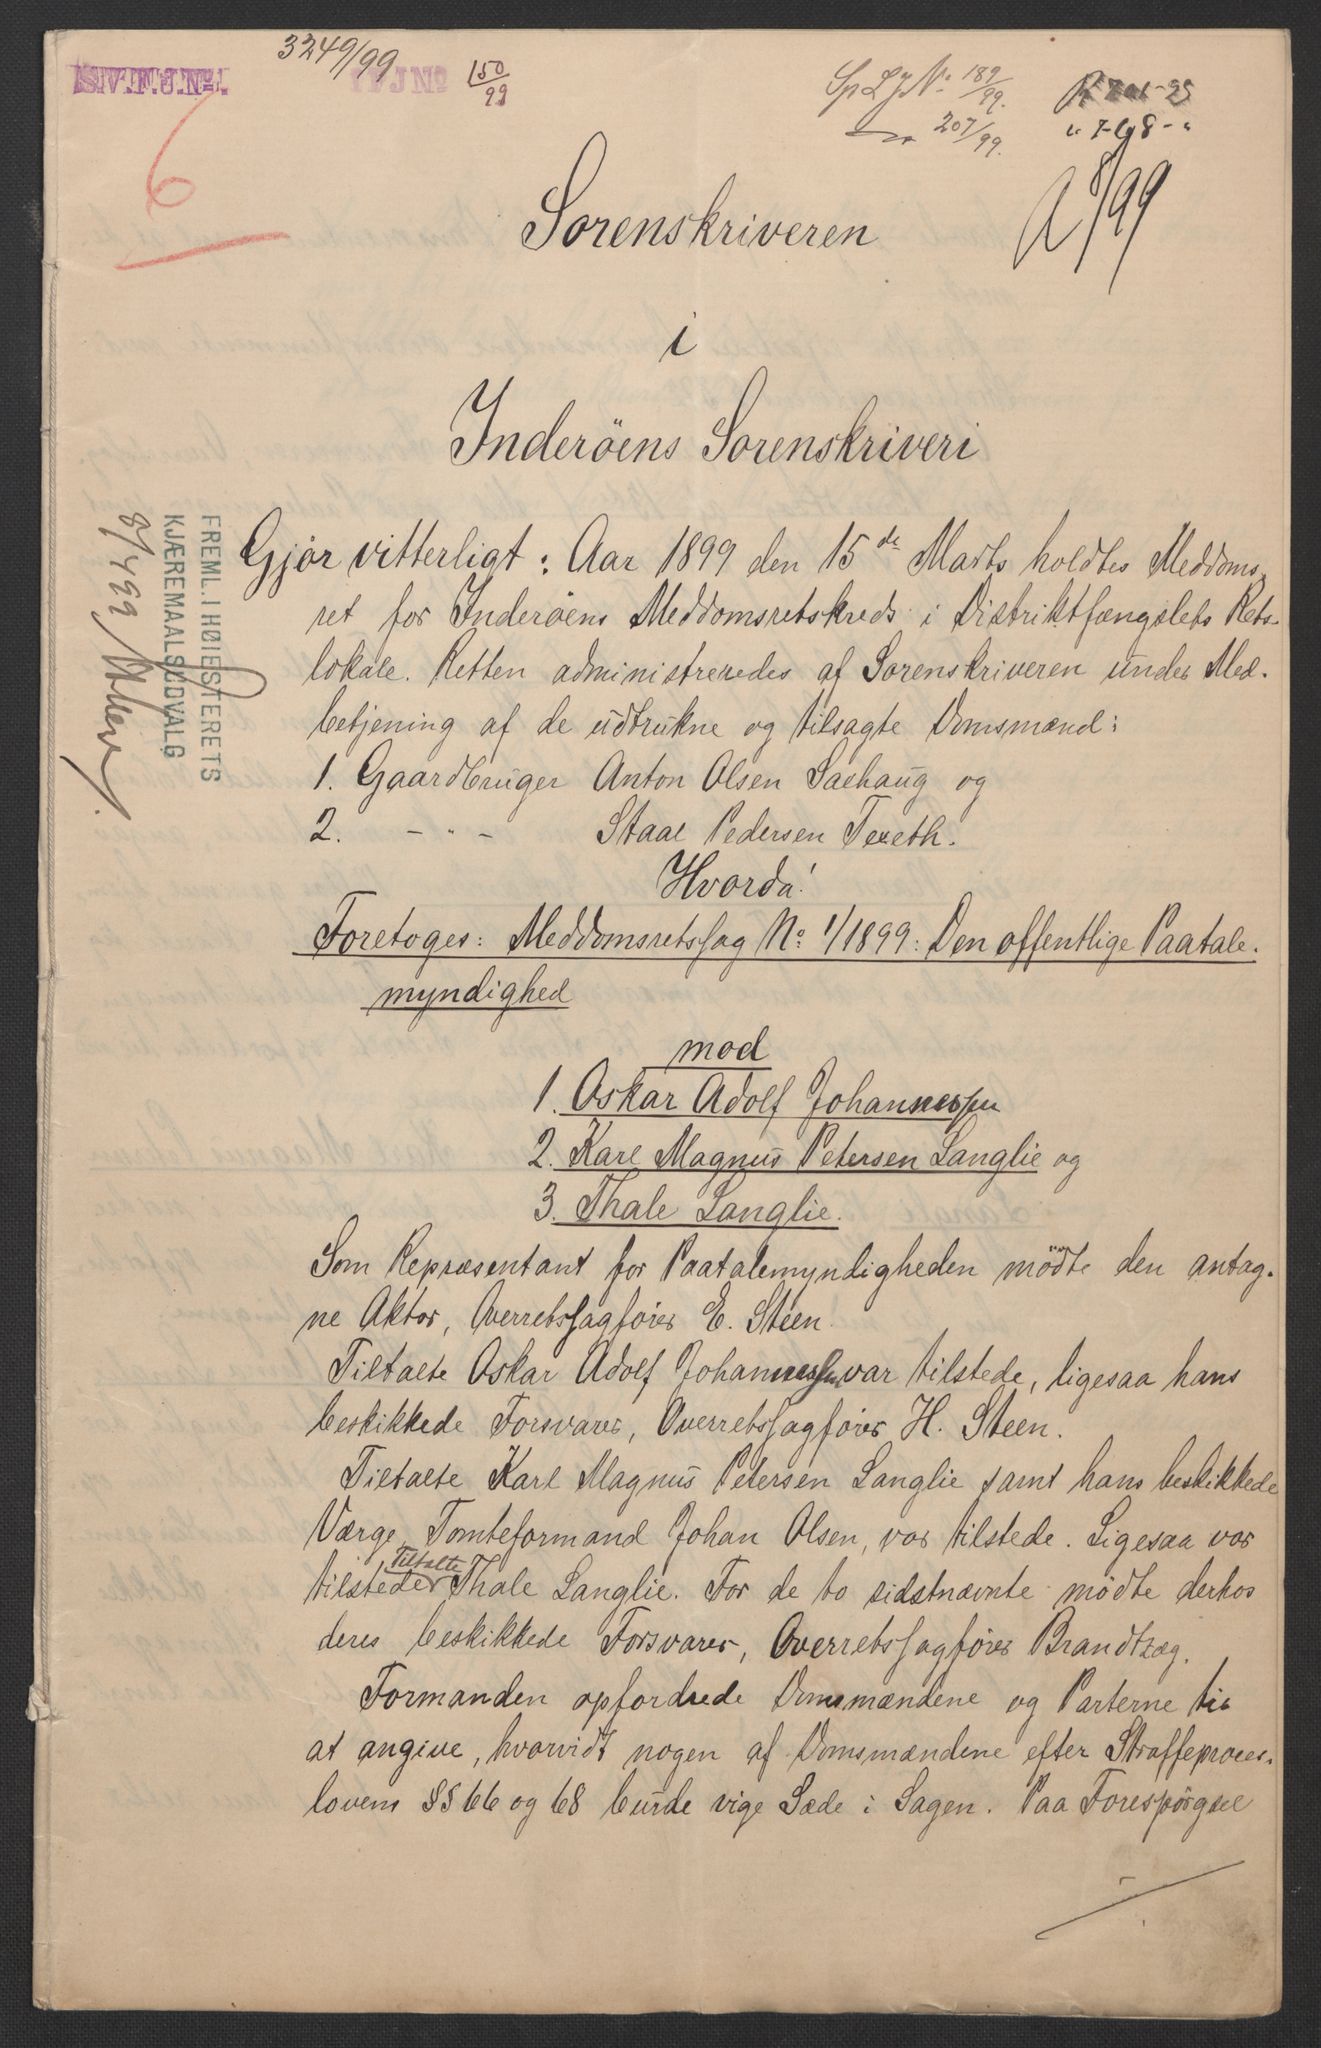 3249/99
S.V.F.J.No.
I F J No 150/99
Sp L J No 189/99.
207/99.
A 8/99
6
Sorenskriveren
i
Inderöens Sorenskriveri
FREML. I HØIESTERETS
KJÆREMAALSUDVALG
8/4 99
Gjör vitterligt: Aar 1899 den 15de Marts holdtes Meddoms-
ret for Inderöens Meddomsretskreds i Distriktfængslets Rets-
lokale. Retten administreredes af Sorenskriveren under Med-
betjening af de udtrukne og tilsagte Domsmænd:
1. Gaardbruger Anton Olsen Salhaug og
2. - " - Staal Pedersen Tereth.
Hvorda!
Foretoges: Meddomsretssag No 1/1899: Den offentlige Paatale-
myndighed
mod
1. Oskar Adolf Johannessen
2. Karl Magnus Petersen Langlie og
3. Thale Langlie.
Som Repræsentant for Paatalemyndigheden mödte den antag-
ne Aktor, Overretssagförer E. Steen.
Tiltalte Oskar Adolf Johannessen var tilstede, ligesaa hans
beskikkede Forsvarer, Overretssagförer H. Steen.
Tiltalte Karl Magnus Petersen Langlie samt hans beskikkede
Værge, Tomteformand Johan Olsen, var tilstede. Ligesaa var
tilstede Tiltalte Thale Langlie. For de to sidstnævnte mödte derhos
deres beskikkede Forsvarer, Overretssagförer Brandtzæg.
Formanden opfordrede Domsmændene og Parterne til
at angive, hvorvidt nogen af Domsmændene efter Straffeproces-
lovens §§ 66 og 68 burde vige Sæde i Sagen. Paa Forespörgsel